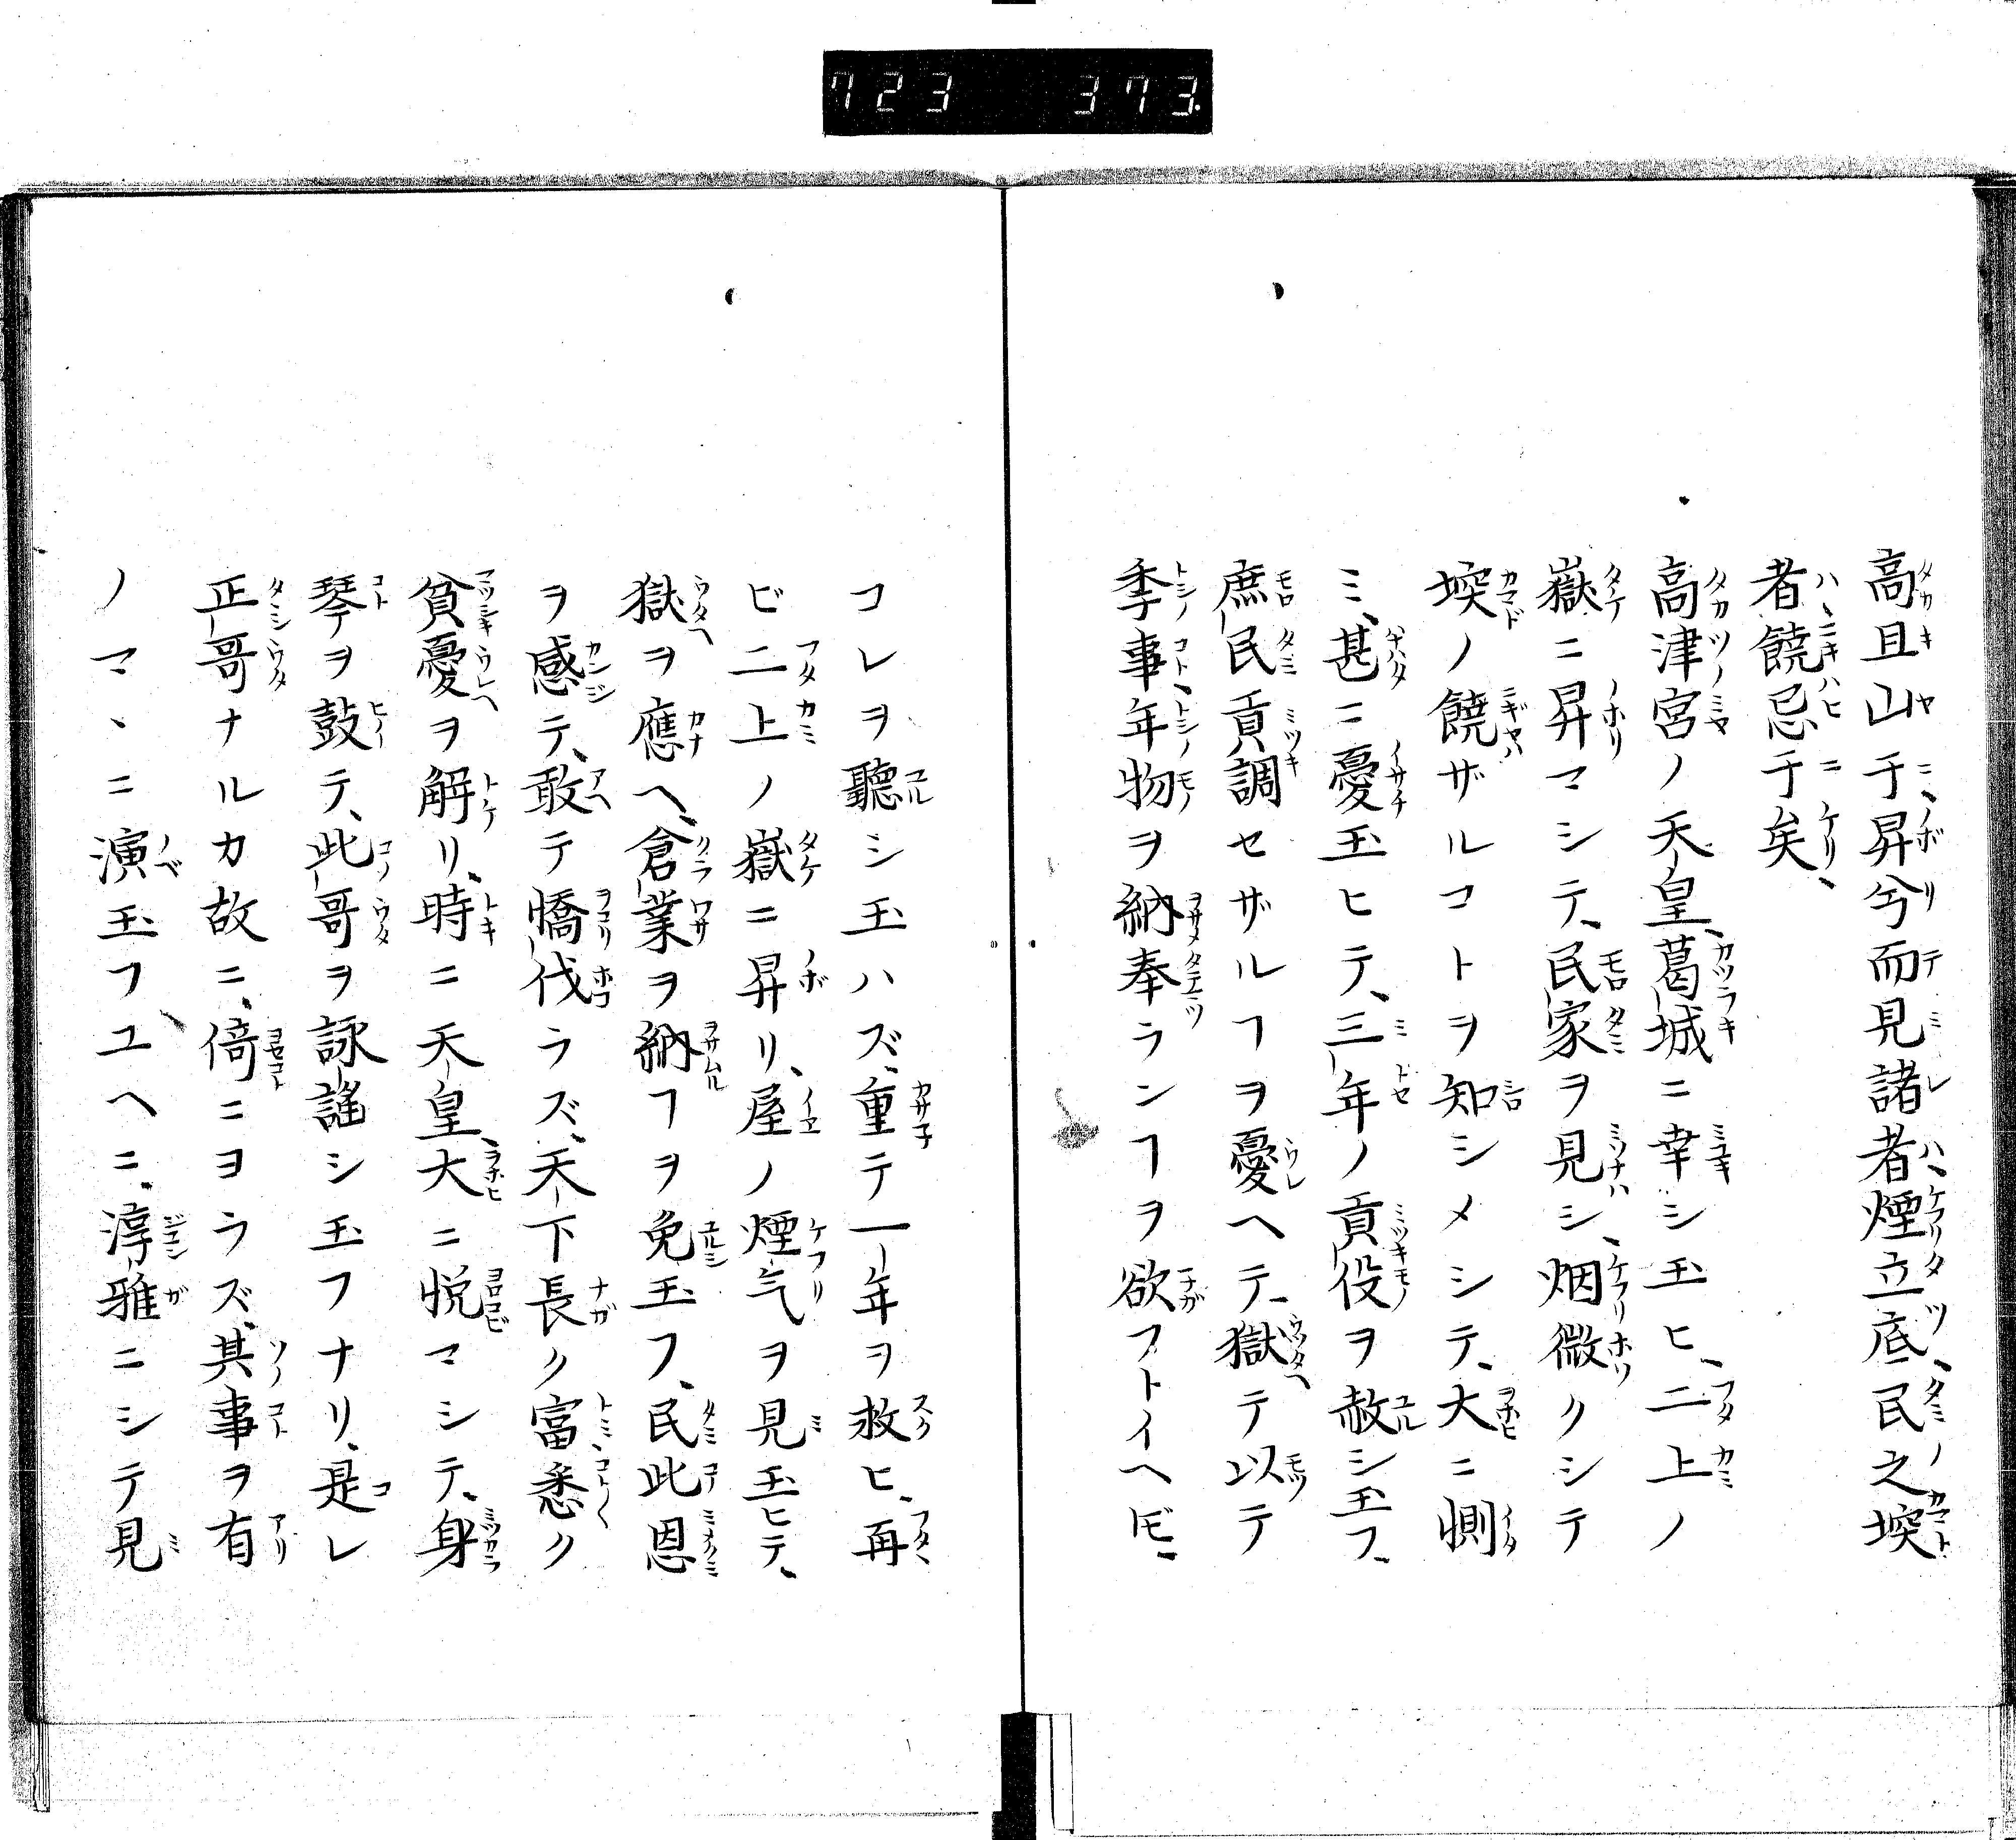 723 373.
高且山于昇兮而見諸者煙立底民之堗
者饒忌于矣、
高津宮ノ天皇、葛城ニ幸シ玉ヒ、二上ノ
嶽ニ昇マシテ、民家ヲ見シ、烟微クシテ
堗ノ饒ザルコトヲ知シメシテ、大ニ惻
ミ、甚ニ憂玉ヒテ、三年ノ貢役ヲ赦シ玉フ、
庶民貢調セザルヿヲ憂ヘテ、獄テ以テ
季事年物ヲ納奉ランヿヲ欲フトイヘ𪜈、
コレヲ聽シ玉ハズ、重テ一年ヲ救ヒ、再
ビ二上ノ嶽ニ昇リ、屋ノ煙气ヲ見玉ヒテ、
獄ヲ應ヘ、倉業ヲ納ヿヲ免玉フ、民此恩
ヲ感テ、敢テ憍伐ラズ、天下長ク富悉ク
貧憂ヲ解リ、時ニ天皇、大ニ悦マシテ、身
琴ヲ鼓テ、此哥ヲ詠謡シ玉フナリ、是レ
正哥ナルカ故ニ、倚ニヨラズ、其事ヲ有
ノマヽニ演玉フユヘニ、淳雅ニシテ見